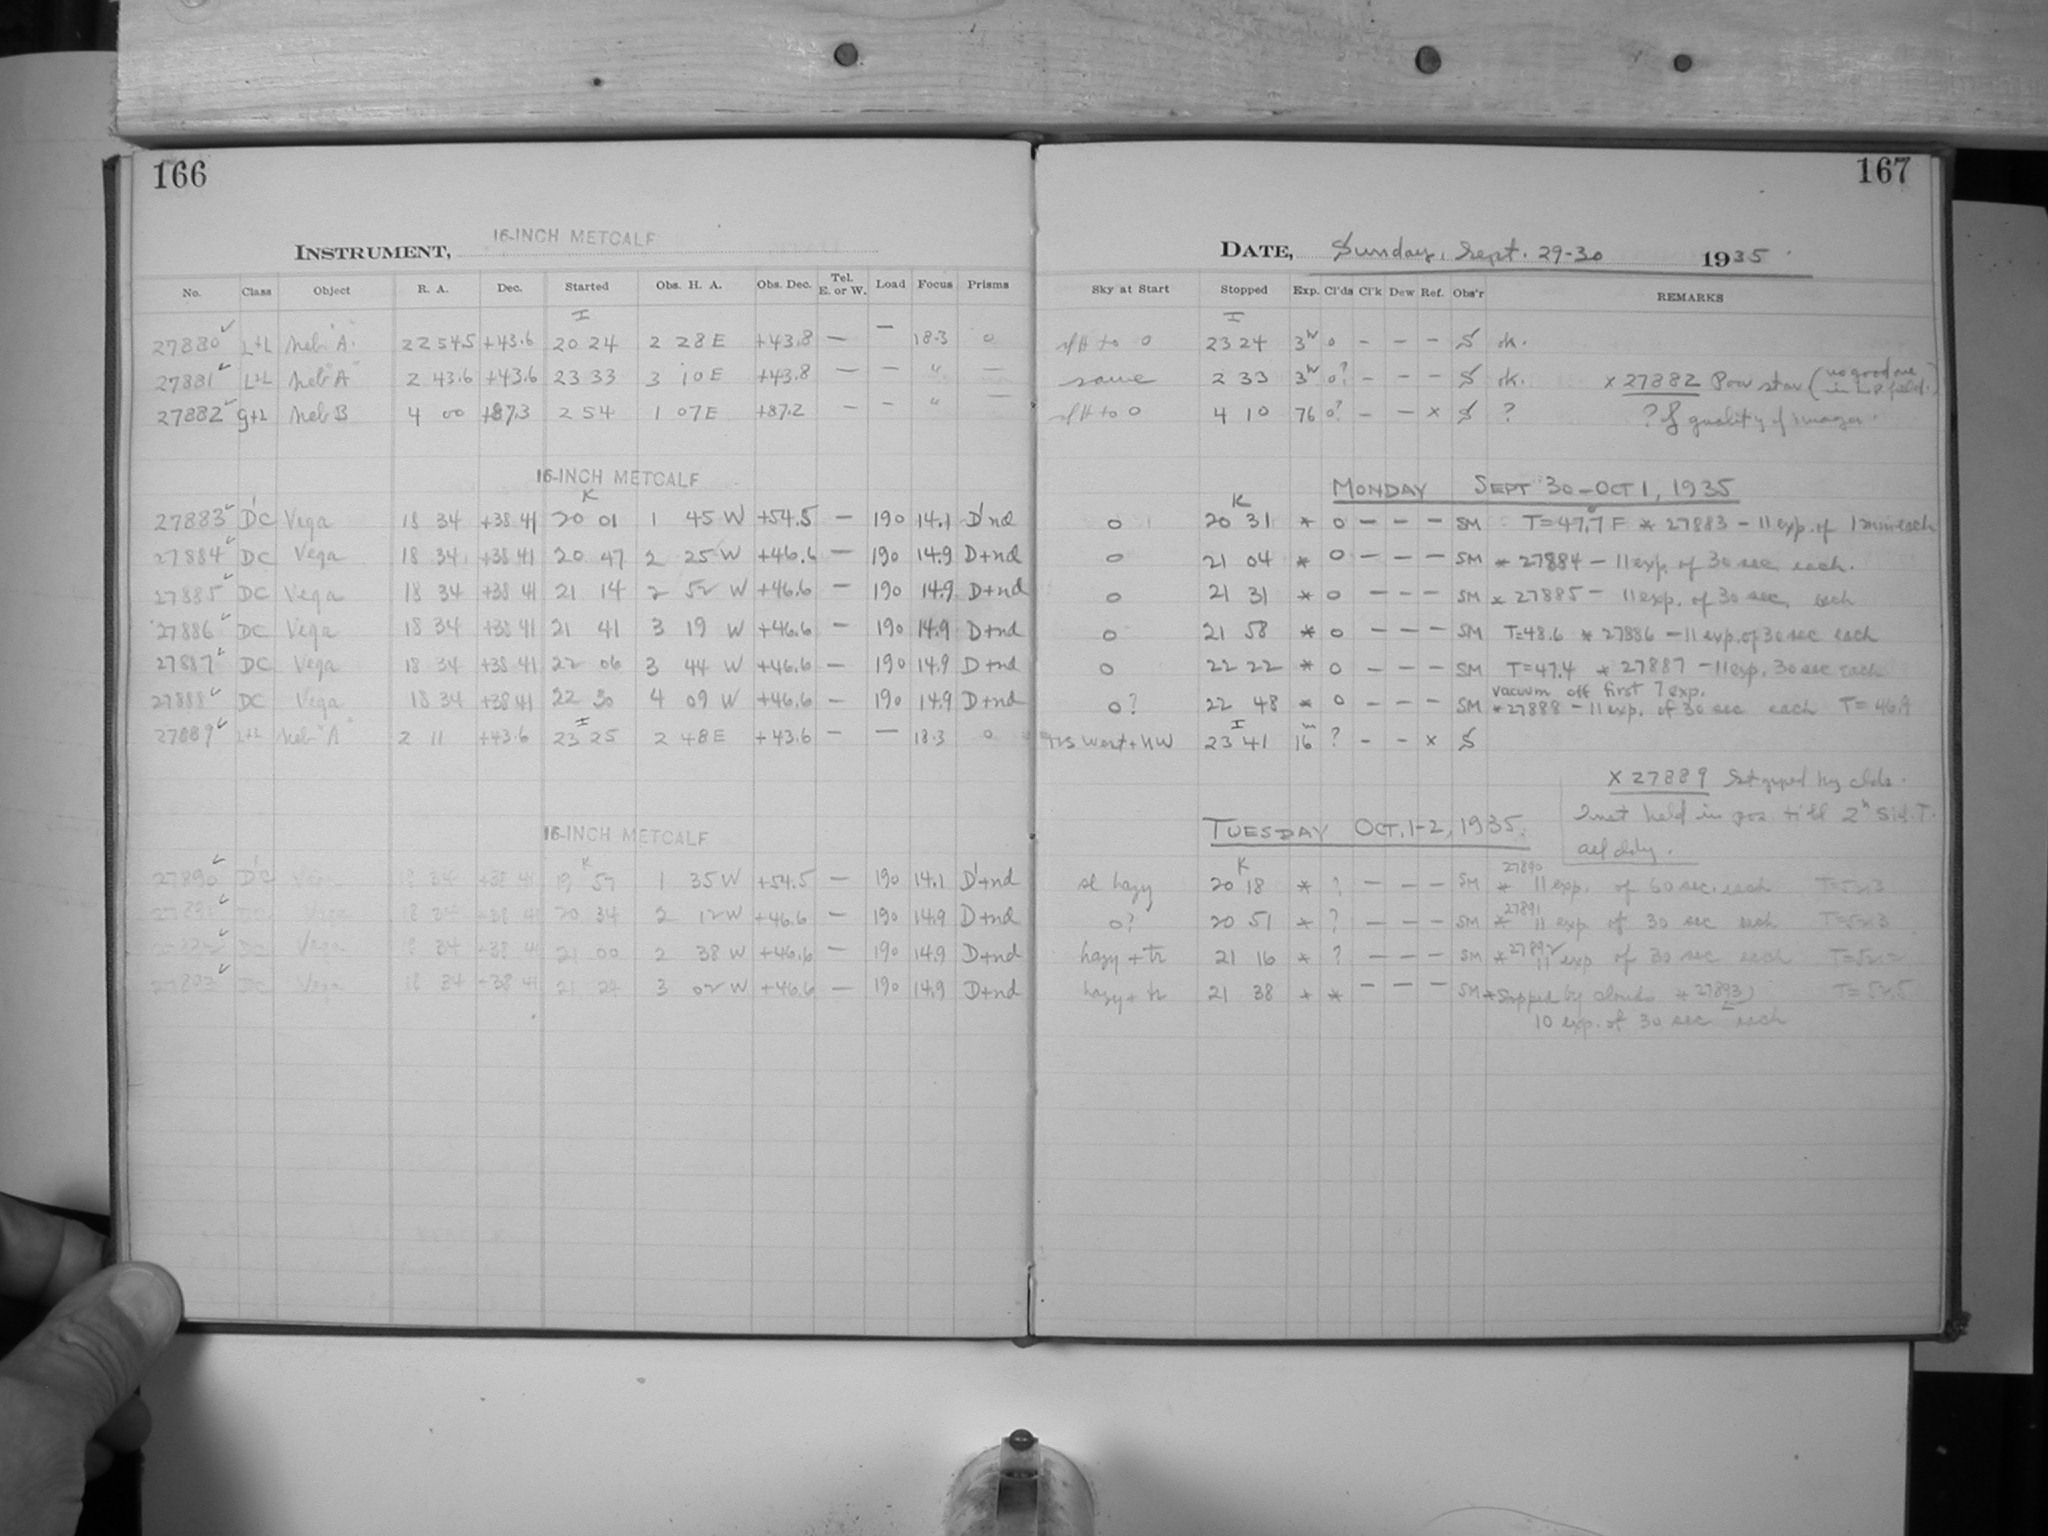 166
INSTRUMENT, 16-INCH METCALF
No. Class Object R. A. Dec. Started Obs. H. A. Obs. Dec. Tel. E. or W. Load Focus Prisms
I
27880 L+L Neb "A" 22 54.5 +43.6 20 24 2 28 E +43.8 — — 18.3 0
27881 L+L Neb "A" 2 43.6 +43.6 23 33 3 10 E +43.8 — — " —
27882 g+L Neb B 4 00 +87.3 2 54 1 07 E +87.2 — — " —
16-INCH METCALF
K
27883 D'C Vega 18 34 +38 41 20 01 1 45 W +54.5 — 190 14.1 D'nd
27884 DC Vega 18 34 +38 41 20 47 2 25 W +46.6 — 190 14.9 D+nd
27885 DC Vega 18 34 +38 41 21 14 2 52 W +46.6 — 190 14.9 D+nd
27886 DC Vega 18 34 +38 41 21 41 3 19 W +46.6 — 190 14.9 D+nd
27887 DC Vega 18 34 +38 41 22 06 3 44 W +46.6 — 190 14.9 D+nd
27888 DC Vega 18 34 +38 41 22 30 4 09 W +46.6 — 190 14.9 D+nd
I
27889 L+L Neb "A" 2 11 +43.6 23 25 2 48 E +43.6 — — 18.3 0
16-INCH METCALF
K
27890 D'C Vega 18 34 +38 41 19 57 1 35 W +54.5 — 190 14.1 D'+nd
27891 DC Vega 18 34 +38 41 20 34 2 12 W +46.6 — 190 14.9 D+nd
27892 DC Vega 18 34 +38 41 21 00 2 38 W +46.6 — 190 14.9 D+nd
27893 DC Vega 18 34 +38 41 21 24 3 02 W +46.6 — 190 14.9 D+nd
167
DATE, Sunday, Sept. 29-30 1935
Sky at Start Stopped Exp. Cl'ds Cl'k Dew Ref. Obs'r REMARKS
I
to 0 23 24 3h 0 - - - S ok.
same 2 33 3h 0? - - - S ok. x 27882 Poor star (no good one in field.)
to 0 4 10 76 0? - - x S ? ? of quality of images.
MONDAY SEPT 30-OCT 1, 1935
K
0 20 31 * 0 - - - SM T=47.7 F * 27883 - 11 exp. of 1 min each
0 21 04 * 0 - - - SM * 27884 - 11 exp. of 30 sec each.
0 21 31 * 0 - - - SM * 27885 - 11 exp. of 30 sec each
0 21 58 * 0 - - - SM T=48.6 * 27886 - 11 exp. of 30 sec each
0 22 22 * 0 - - - SM T=47.4 * 27887 - 11 exp. 30 sec each
vacuum off first 7 exp.
0? 22 48 * 0 - - - SM * 27888 - 11 exp. of 30 sec each T=46.9
I
West + NW 23 41 16m ? - - x S
x 27889 Stopped by clds.
Inst held in pos till 2h Sid. T.
all cldy.
TUESDAY OCT. 1-2, 1935.
K
sl hazy 20 18 * ? - - - SM * 27890 11 exp. of 60 sec. each
0? 20 51 * ? - - - SM * 27891 11 exp. of 30 sec each
hazy + tr 21 16 * ? - - - SM * 27892 11 exp of 30 sec each
hazy + tr 21 38 * * - - - SM * Stopped by clouds * 27893 T=52.5
10 exp. of 30 sec each